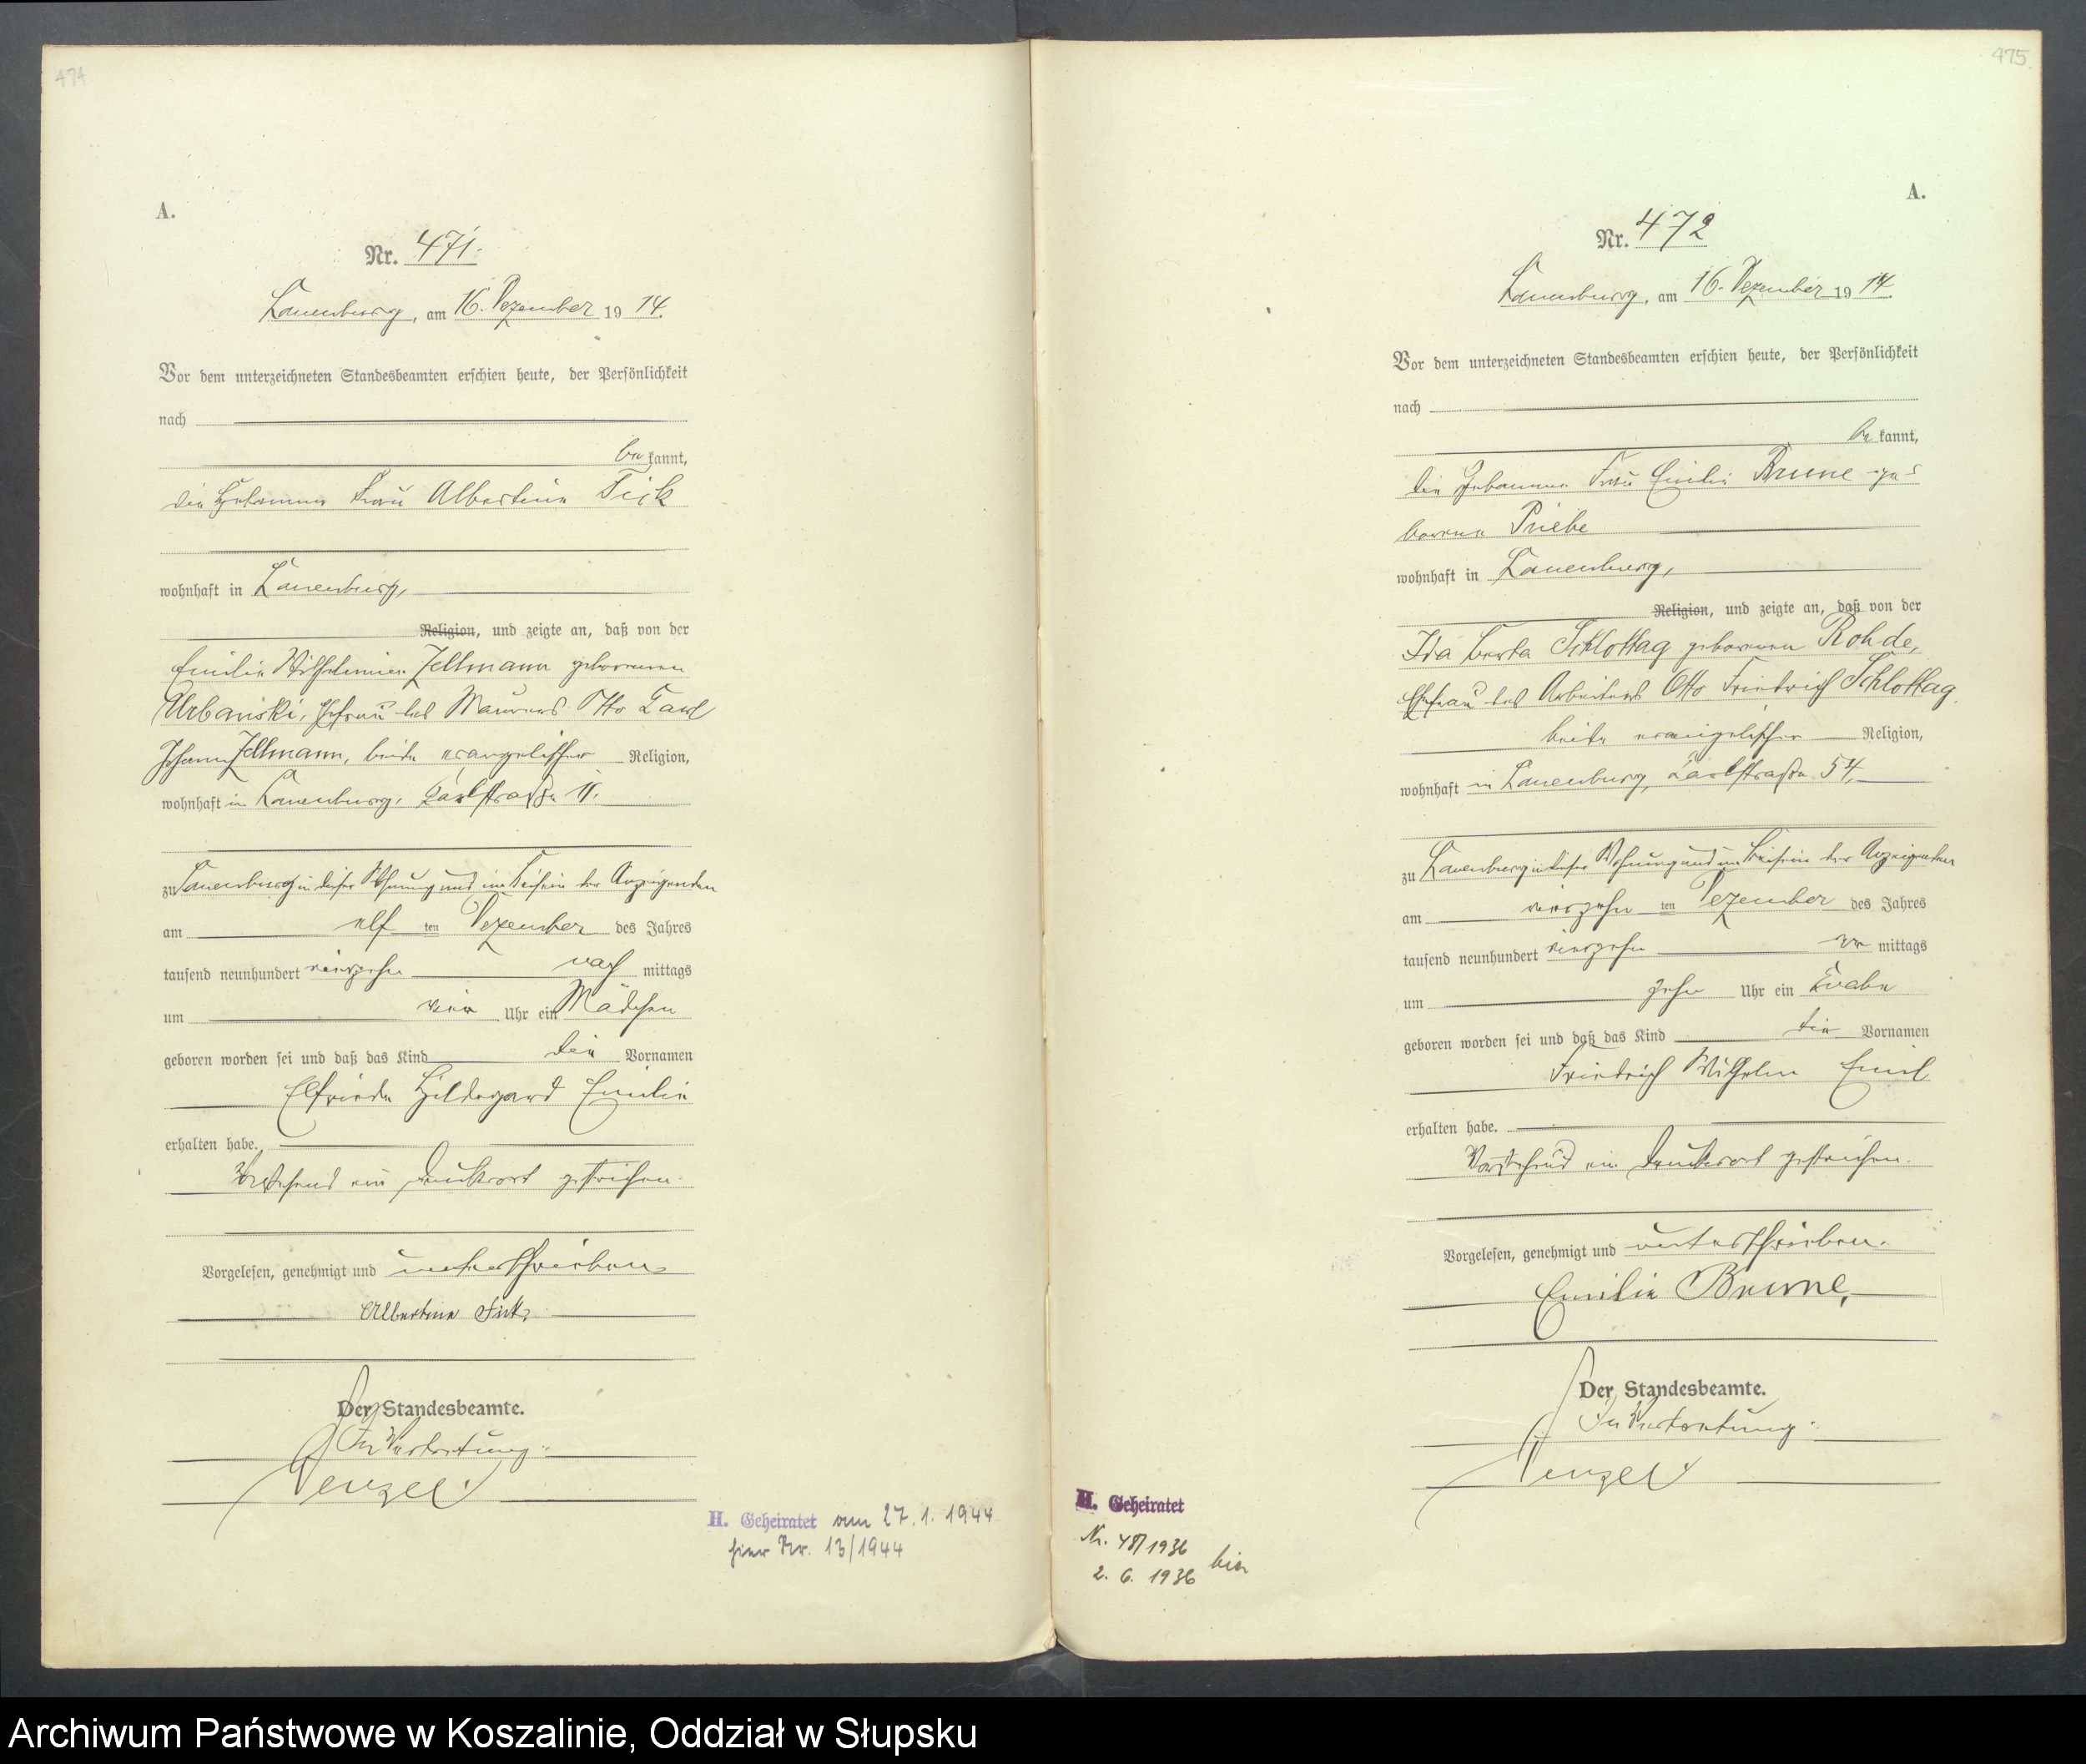 474
A.
Nr. 471.
Lauenburg, am 16. Dezember 1914.
Vor dem unterzeichneten Standesbeamten erschien heute, der Persönlichkeit
nach
be kannt,
die Hebamme Frau Albertine Fick
wohnhaft in Lauenburg,
Religion, und zeigte an, daß von der
Emilie Wilhelmine Jellmann geborenen
Urbanski, Ehefrau des Maurers Otto Carl
Johann Jellmann, beide evangelischer Religion,
wohnhaft in Lauenburg, Karlstraße 11.
zu Lauenburg in dieser Wohnung und im Beisein der Anzeigenden
am elf ten Dezember des Jahres
tausend neunhundert vierzehn nach mittags
um vier Uhr ein Mädchen
geboren worden sei und daß das Kind die Vornamen
Elfriede Hildegard Emilie
erhalten habe.
Vorstehend ein Druckwort gestrichen.
Vorgelesen, genehmigt und unterschrieben.
Albertine Fick.
Der Standesbeamte.
In Vertretung:
Wenzel.
H. Geheiratet am 27.1.1944
hier Nr. 13/1944
475.
A.
Nr. 472
Lauenburg, am 16. Dezember 1914.
Vor dem unterzeichneten Standesbeamten erschien heute, der Persönlichkeit
nach
be kannt,
die Hebamme Frau Emilie Brune ge=
borene Priebe
wohnhaft in Lauenburg,
Religion, und zeigte an, daß von der
Ida Berta Schlottag geborenen Rohde,
Ehefrau des Arbeiters Otto Friedrich Schlottag
beide evangelischer Religion,
wohnhaft in Lauenburg, Karlstraße 54,
zu Lauenburg in dieser Wohnung und im Beisein der Anzeigenden
am vierzehn ten Dezember des Jahres
tausend neunhundert vierzehn vor mittags
um zehn Uhr ein Knabe
geboren worden sei und daß das Kind die Vornamen
Friedrich Wilhelm Emil
erhalten habe.
Vorstehend ein Druckwort gestrichen.
Vorgelesen, genehmigt und unterschrieben.
Emilie Brune,
Der Standesbeamte.
In Vertretung:
Wenzel
H. Geheiratet
Nr. 48/1936 hier
2. 6. 1936
Archiwum Państwowe w Koszalinie, Oddział w Słupsku